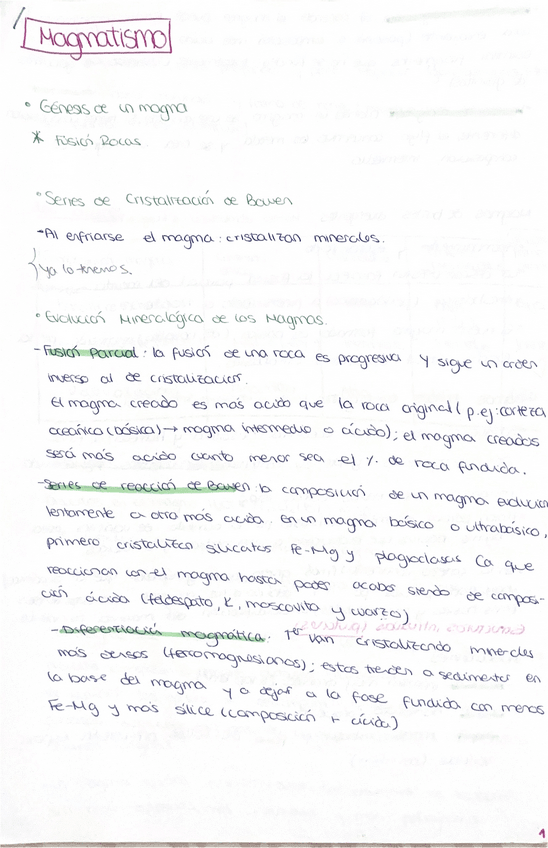 Magmatismo
° Génesis de un magma
* Fusión Rocas
° Series de Cristalización de Bowen
- Al enfriarse el magma: cristalizan minerales.
} Ya lo tenemos.
° Evolución Mineralógica de los Magmas.
- Fusión parcial: la fusión de una roca es progresiva y sigue un orden
inverso al de cristalización.
El magma creado es más acido que la roca original (p.ej: corteza
oceánica (básica) → magma intermedio o ácido); el magma creados
será más acido cuanto menor sea el % de roca fundida.
- Series de reacción de Bowen: la composición de un magma evoluciona
lentamente a otro más ácida. en un magma básico o ultrabásico,
primero cristalizan silicatos Fe-Mg y plagioclasas Ca que
reaccionan con el magma hasta poder acabar siendo de composi-
ción ácida (feldespato, K, moscovita y cuarzo)
- Diferenciación magmática: 1º van cristalizando minerales
más densos (ferromagnesianos); estos tienden a sedimentar en
la base del magma y a dejar a la fase fundida con menos
Fe-Mg y más sílice (composición + ácida)
1